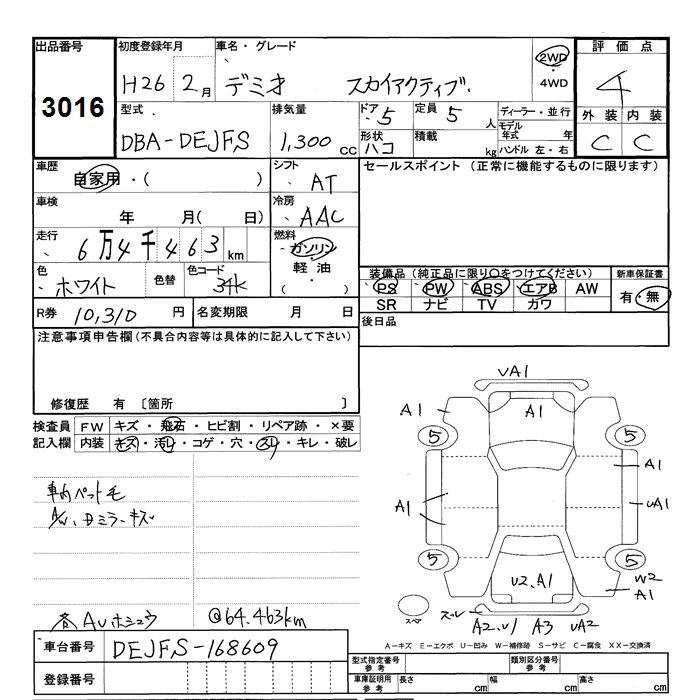 出品番号 初度登録年月 車名・グレード 評価点
3016 H26 2月 デミオ スカイアクティブ 2WD・4WD 4
型式 排気量 ドア 5 定員 5人 ディーラー・並行 外装 内装
DBA-DEJFS 1,300cc 形状 ハコ 積載 kg モデル年式 年 ハンドル 左・右 C C
車歴 自家用・( ) シフト AT セールスポイント (正常に機能するものに限ります)
車検 年 月( 日) 冷房 AAC
走行 6万4千463km 燃料 ガソリン・軽油・( )
色 ホワイト 色替 色コード 34K 装備品(純正品に限り○をつけてください) 新車保証書
PS PW ABS エアB AW 有・無
SR ナビ TV カワ
R券 10,310円 名変期限 月 日 後日品
注意事項申告欄(不具合内容等は具体的に記入して下さい)
修復歴 有 〔箇所 〕
検査員 FW キズ・飛石・ヒビ割・リペア跡・×要
記入欄 内装 キズ・汚レ・コゲ・穴・スレ・キレ・破レ
車内ペット毛
A/W、Dミラーキズ
AWホシュウ @64.463km
UA1
A1 A1
5 5
A1
A1 UA1
5 5
U2、A1 W2
A1
スペア スーレ A2、U1 A3 UA2
A-キズ E-エクボ U-凹み W-補修跡 S-サビ C-腐食 XX-交換済
車台番号 DEJFS-168609 型式指定番号 参考 類別区分番号 参考
登録番号 車庫証明用 参考 長さ cm 幅 cm 高さ cm